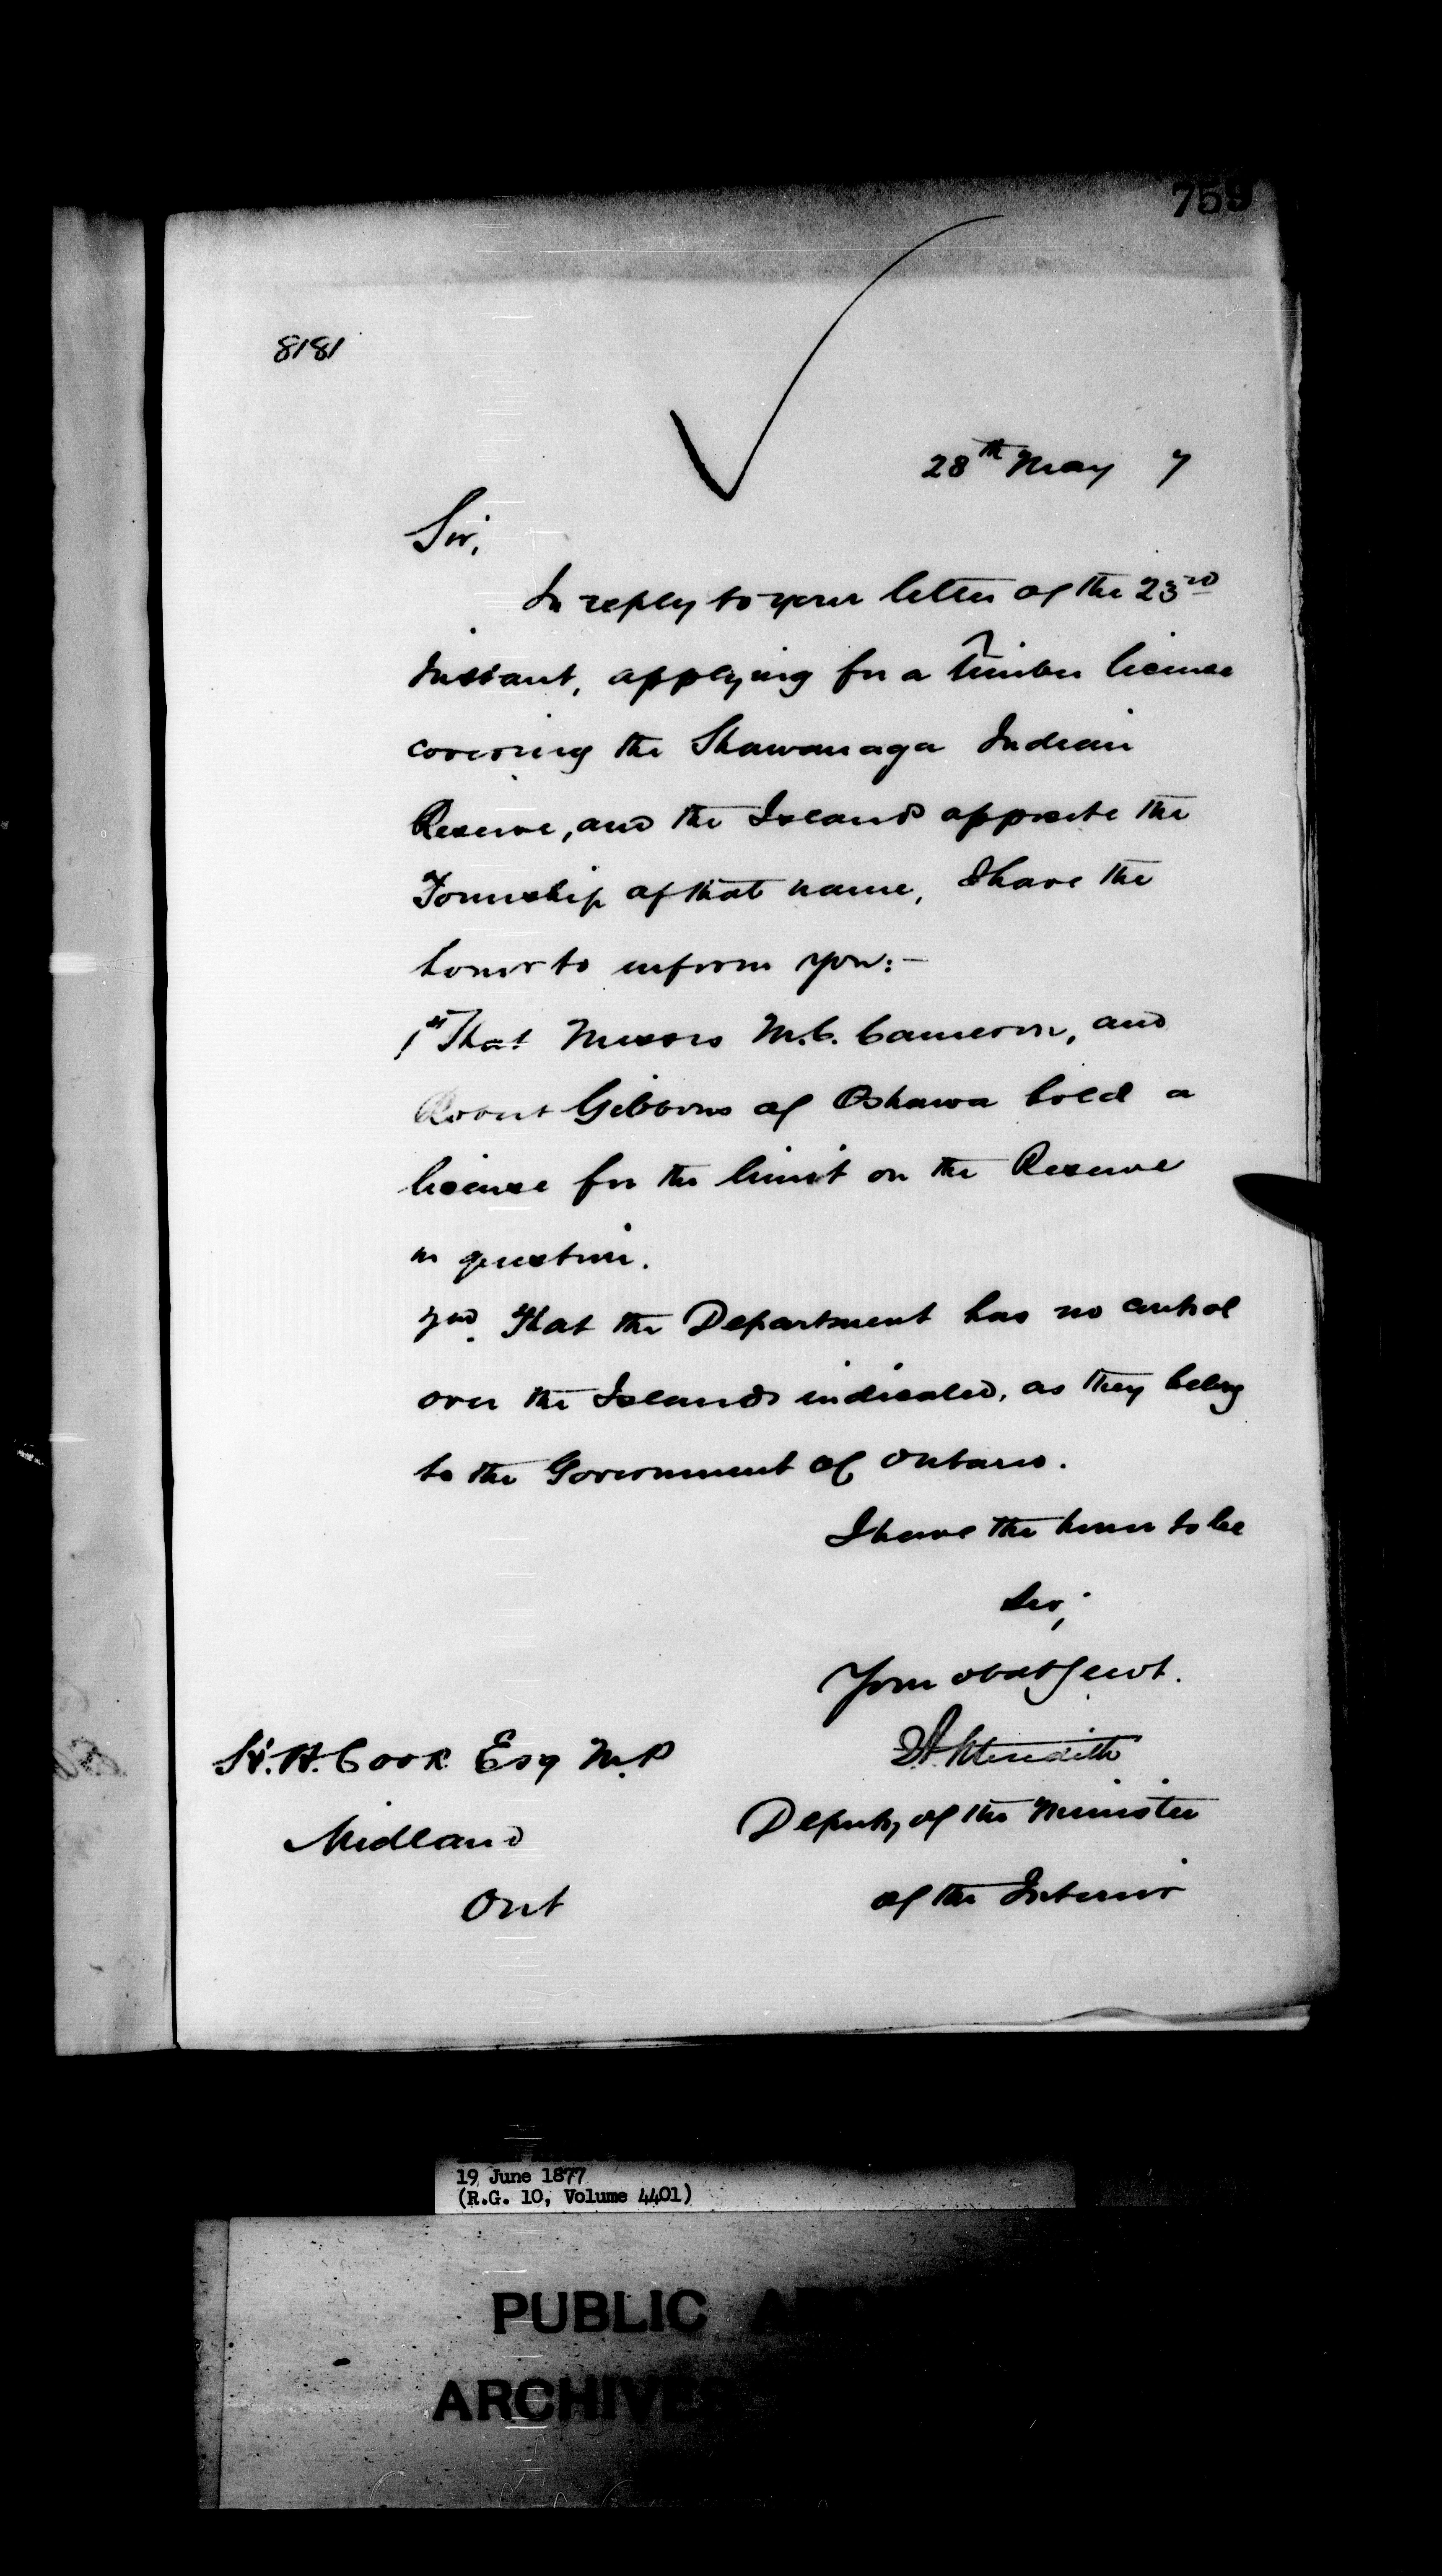 759
8181
28th May 7
Sir,
In reply to your letter of the 23rd
Instant, applying for a timber license
covering the Shawanaga Indian
Reserve, and the Islands opposite the
Township of that name, I have the
honor to inform you:-
1st That Messrs M.C. Cameron, and
Robert Gibbons of Oshawa hold a
license for the limit on the Reserve
in question.
2nd. That the Department has no control
over the Islands indicated, as they belong
to the Government of Ontario.
I have the honor to be
Sir,
Your obdt Servt.
Meredith
H. H. Cook Esq M.P
Deputy of the Minister
Midland
of the Interior
Ont
19 June 1877
(R.G. 10, Volume 4401)
PUBLIC
ARCHIVES